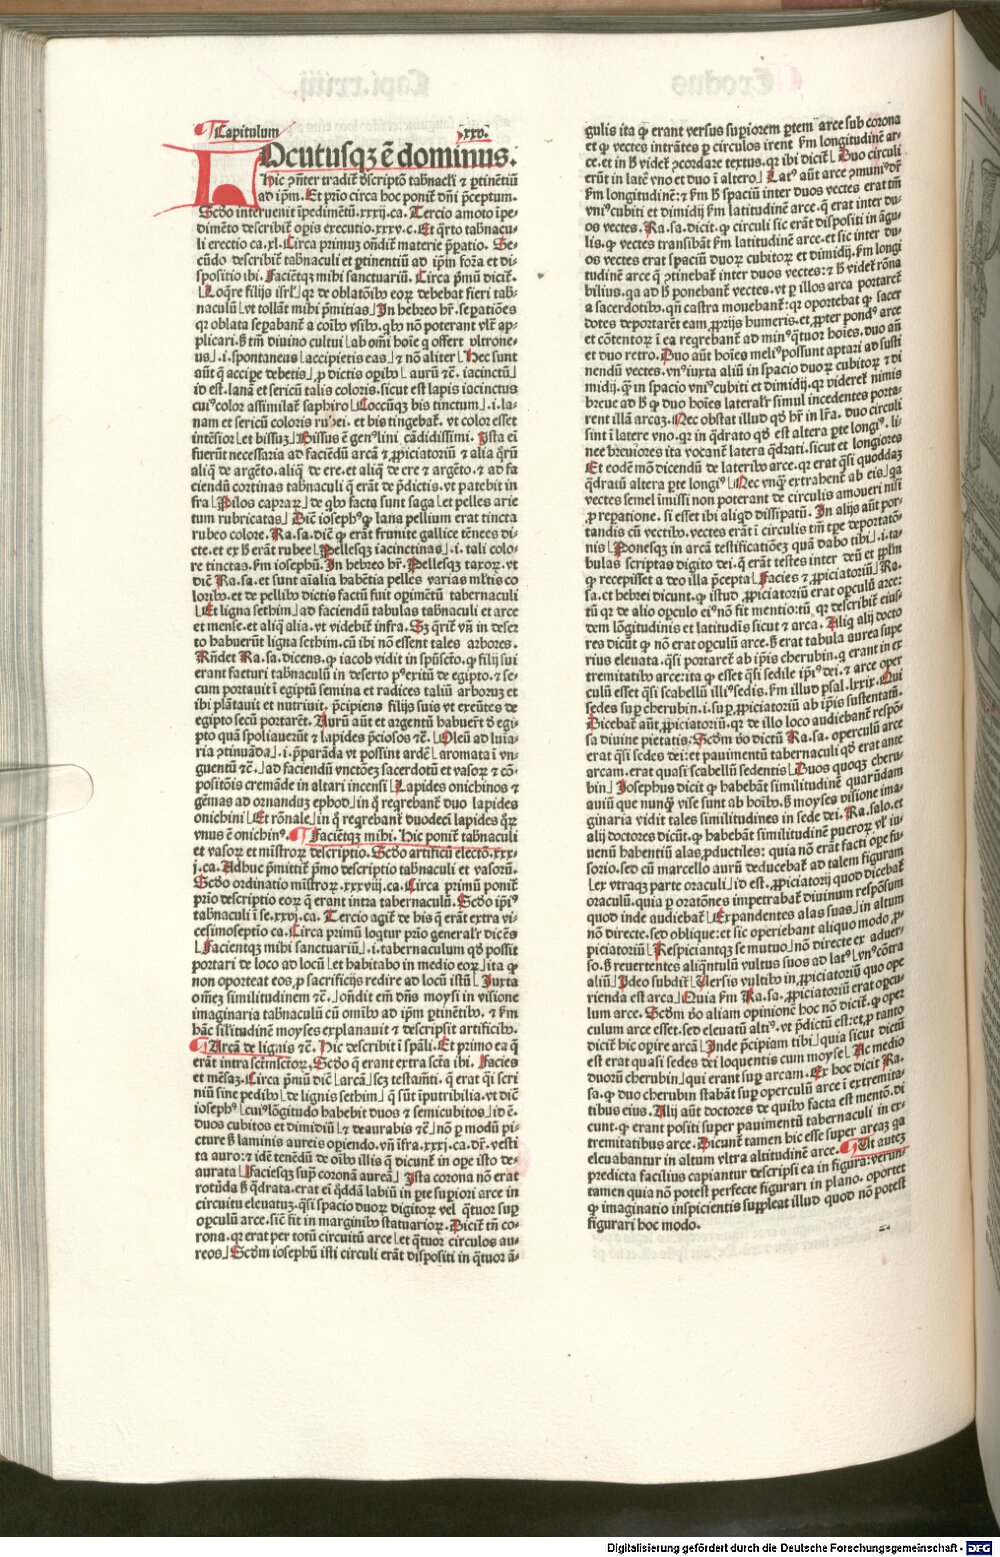 Capitulum .xxv.
Locutusqz ē dominus.
Hic ↄn̄ter tradit̄ dscriptō tab̄nacl̄i ⁊ ꝑtinētiū
ad ip̄m. Et prīo circa hoc ponit̄ dn̄i p̄ceptum.
Scd̄o interuenit īpedimētū.xxxij.ca. Tercio amoto īpe-
dimēto describit̄ oꝑis executio.xxxv.c. Et q̄rto tabnacu-
li erectio ca.xl. Circa primuz on̄dit̄ materie p̄ꝑatio. Se-
cūdo describit̄ tabnaculi et ꝑtinentiū ad ip̄m forma et di-
spositio ibi. Faciētqz mihi sanctuariū. Circa p̄mū dicit̄.
Loq̄re filijs isrl̄ qr de oblatōibꝰ eoꝝ debebat fieri tab-
naculū vt tollāt mihi p̄mitias In hebreo hr̄. seꝑatiōes
qr oblata seꝑabant̄ a coībꝰ vsibꝰ. qbꝰ nō poterant vlt̄ ap-
plicari. ß tm̄ diuino cultui ab om̄i hoīe q offert vltrone-
us .i. spontaneus accipietis eas ⁊ nō aliter Hec sunt
aūt q̄ accipe debetis ꝓ dictis oꝑibꝰ aurū ⁊c. iacinctū
id est. lanā et sericū talis coloris. sicut est lapis iacinctus
cuiꝰ color assimilat̄ saphiro Coccūqz bis tinctum .i. la-
nam et sericū coloris rubei. et bis tingebat̄. vt color esset
intēsior et bissuz Bissus ē genꝰ lini cādidissimi. Ista eī
fuerūt necessaria ad faciēdū arcā ⁊ ꝓpiciatoriū ⁊ alia q̄rū
aliq̄ de argēto. aliq̄ de ere. et aliq̄ de ere ⁊ argēto. ⁊ ad fa
ciendū cortinas tabnaculi q̄ erāt de p̄dictis. vt patebit in
fra Pilos capraꝝ de qbꝰ facta sunt saga et pelles arie
tum rubricatas Dic̄ iosephꝰ ꝙ lana pellium erat tincta
rubeo colore. Ra.sa. dic̄ ꝙ erāt frunite gallice tēnees di-
cte. et ex ß erāt rubee Pellesqz iacinctinas .i. tali colo-
re tinctas. fm iosephū. In hebreo hr̄. Pellesqz taxoꝝ. vt
dic̄ Ra.sa. et sunt aīalia habētia pelles varias ml̄tis co
loribꝰ. et de pellibꝰ dictis factū fuit oꝑimētū tabernaculi
Et ligna sethim ad faciendū tabulas tabnaculi et arce
et mense. et aliq̄ alia. vt videbit̄ infra. Sz q̄rit̄ vn̄ in deser
to habuerūt ligna sethim. cū ibi nō essent tales arbores.
Rn̄det Ra.sa. dicens. ꝙ iacob vidit in sp̄uscto. ꝙ filij sui
erant facturi tabnaculū in deserto pꝰ exitū de egipto. ⁊ se-
cum portauit ī egiptū semina et radices taliū arboruz et
ibi plātauit et nutriuit. p̄cipiens filijs suis vt exeūtes de
egipto secū portarēt. Aurū aūt et argentū habuert̄ ō egi-
pto quā spoliauerūt ⁊ lapides p̄ciosos ⁊c. Oleū ad luia-
ria ↄtinuāda .i. p̄parāda vt possint ardē aromata ī vn-
guentū ⁊c. ad faciendū vnctōez sacerdotū et vasoꝝ ⁊ cō-
positōis cremāde in altari incensi Lapides onichinos ⁊
gēmas ad ornanduz ephod in q̄ reqrebant̄ duo lapides
onichini Et rōnale in q̄ reqrebant̄ duodecī lapides q̄ꝝ
vnus ē onichinꝰ. Faciētqz mihi. Hic ponit̄ tab̄naculi
et vasoꝝ et mīstroꝝ descriptio. Scd̄o artificū electō.xxx-
j.ca. Adhuc p̄mittit̄ p̄mo descriptio tabnaculi et vasorū.
Scd̄o ordinatio mīstroꝝ.xxxviij.ca. Circa primū ponit̄
prīo descriptio eoꝝ q̄ erant intra tabernaculū. Scd̄o ip̄iꝰ
tabnaculi ī se.xxvj.ca. Tercio agit̄ de his q̄ erāt extra vi-
cesimoseptio ca. Circa primū loqtur prīo generalr̄ dicēs
Facientqz mihi sanctuariū .i. tabernaculum qd̄ possit
portari de loco ad locū et habitabo in medio eoꝝ ita ꝙ
non oporteat eos ꝓ sacrificijs redire ad locū istū Iuxta
om̄ez similitudinem ⁊c. on̄dit em̄ dn̄s moysi in visione
imaginaria tabnaculū cū omībꝰ ad ip̄m ꝑtinētibꝰ. ⁊ fm
hāc sil̄itudinē moyses explanauit ⁊ descripsit artificibꝰ.
Arcā de lignis ⁊c. Hic describit ī spāli. Et primo ea q̄
erāt intra sctm̄sctoꝝ. Scd̄o q̄ erant extra scta ibi. Facies
et mēsaz. Circa p̄mū dic̄ arcā scz testam̄ti. q̄ erat qi scri
niū sine pedibꝰ de lignis sethim q̄ sūt īputribilia. vt dic̄
iosephꝰ cuiꝰ lōgitudo habebit duos ⁊ semicubitos id ē.
duos cubitos et dimidiū ⁊ deaurabis ⁊c. nō ꝑ modū pi-
cture ß laminis aureis oꝑiendo. vn̄ īfra.xxxj.ca.dr̄. vesti
ta auro: ⁊ idē tenēdū de oībꝰ illis q̄ dicunt̄ in oꝑe isto de-
aurata Faciesqz supra coronā aureā Ista corona nō erat
rotūda ß q̄drata. erat ei q̄ddā labiū in ꝑte suꝑiori arce in
circuitu eleuatuz. q̄si spacio duoꝝ digitoꝝ vel q̄tuor suꝑ
oꝑculū arce. sic̄ fit in marginibꝰ statuarioꝝ. Dicit̄ tn̄ co-
rona. qr erat per totū circuitū arce et q̄tuor circulos au-
reos Scd̄m iosephū isti circuli erāt dispositi in q̄tuor ā-
gulis ita ꝙ erant versus suꝑiorem ꝑtem arce sub corona
et ꝙ vectes intrātes ꝑ circulos irent fm longitudinē ar-
ce. et in ß videt̄ ↄcordare textus. qr ibi dicit̄ Duo circuli
erūt in latē vno et duo ī altero Latꝰ aūt arce ↄmuniꝰ dr̄
fm longitudinē: ⁊ fm ß spaciū inter duos vectes erat tm̄
vniꝰ cubiti et dimidij fm latitudinē arce. q̄ erat inter du-
os vectes. Ra.sa. dicit. ꝙ circuli sic erāt dispositi in āgu-
lis. ꝙ vectes transibāt fm latitudinē arce. et sic inter du-
os vectes erat spaciū duoꝝ cubitoꝝ et dimidij. fm longi
tudinē arce q̄ ↄtinebat̄ inter duos vectes: ⁊ ß videt̄ rōna
bilius. qa ad ß ponebant̄ vectes. vt ꝑ illos arca portaret̄
a sacerdotibꝰ. qn̄ castra mouebant̄: qr oportebat ꝙ sacer
dotes deportarēt eam. ꝓprijs humeris. et ꝓpter pondꝰ arce
et cōtentoꝝ ī ea reqrebant̄ ad minꝰ q̄tuor hoīes. duo an̄
et duo retro. Duo aūt hoīes meliꝰ possunt aptari ad susti
nendū vectes. vnꝰ iuxta aliū in spacio duoꝝ cubitoꝝ ⁊ di
midij. q̄ in spacio vniꝰ cubiti et dimidij. qr videret̄ nimis
breue ad ß ꝙ duo hoīes lateralr̄ simul incedentes porta-
rent illā arcaz. Nec obstat illud qd̄ hr̄ in lr̄a. duo circuli
sint ī latere vno. qr in q̄drato qd̄ est altera ꝑte longiꝰ. li-
nee breuiores ita vocant̄ latera q̄drati. sicut et longiores
Et eodē mō dicendū de lateribꝰ arce. qr erat q̄si quoddaz
q̄dratū altera ꝑte longiꝰ Nec vnq̄ extrahent̄ ab eis qa
vectes semel īmissi non poterant de circulis amoueri nisi
ꝓ reꝑatione. si esset ibi aliqd dissipatū. In alijs aūt por-
tandis cū vectibꝰ. vectes erāt ī circulis tm̄ tꝑe deportatō-
nis Ponesqz in arcā testificatiōez quā dabo tibi .i. ta-
bulas scriptas digito dei. q̄ erāt testes inter deū et ꝓplm̄
ꝙ recepisset a deo illa p̄cepta Facies ⁊ ꝓpiciatoriū Ra.
sa. et hebrei dicunt. ꝙ istud ꝓpiciatoriū erat oꝑculū arce:
tū qr de alio oꝑculo eiꝰ nō fit mentio: tū qr describit̄ eius-
dem lōgitudinis et latitudis sicut ⁊ arca. Aliq alij docto
res dicūt ꝙ nō erat oꝑculū arce. ß erat tabula aurea supe
rius eleuata. q̄si portaret̄ ab ip̄is cherubin. q̄ erant in ex
tremitatibꝰ arce: ita ꝙ esset q̄si sedile ip̄iꝰ dei. ⁊ arce oper
culū esset q̄si scabellū illiꝰ sedis. fm illud psal.lxxix. Qui
sedes suꝑ cherubin. i. suꝑ ꝓpiciatoriū ab ip̄is sustentatū.
Dicebat̄ aūt ꝓpiciatoriū. qr de illo loco audiebant̄ respō-
sa diuine pietatis. Scd̄m ho dictū Ra.sa. operculū arce
erat q̄si sedes dei: et pauimentū tabernaculi qd̄ erat ante
arcam. erat quasi scabellū sedentis Duos quoqz cheru-
bin Iosephus dicit ꝙ habebāt similitudinē quarūdam
auiū que nunq̄ vise sunt ab hoībꝰ. ß moyses visione ima-
ginaria vidit tales similitudines in sede dei. Ra.salo. et
alij doctores dicūt. ꝙ habebāt similitudinē pueroꝝ vl̄ iu-
uenū habentiū alas ꝓductiles: quia nō erāt facti oꝑe fu-
sorio. sed cū marcello aurū deducebat̄ ad talem figuram
ex vtraqz parte oraculi id est. ꝓpiciatorij quod dicebat̄
oraculū. quia ꝑ oratōnes impetrabat̄ diuinum respōsum
quod inde audiebat̄ Expandentes alas suas in altum
nō directe. sed oblique: et sic operiebant aliquo modo ꝓ-
piciatoriū Respiciantqz se mutuo nō directe ex aduer-
so. ß reuertentes aliq̄ntulū vultus suos ad latꝰ vnꝰ cōtra
aliū Ideo subdit̄ Versis vultibꝰ in ꝓpiciatoriū quo ope
rienda est arca Quia fm Ra.sa. ꝓpiciatoriū erat oꝑcu-
lum arce. Scd̄m ho aliam opinionē hoc nō dicit̄. ꝙ oper
culum arce esset. sed eleuatū altiꝰ. vt p̄dictū est: et ꝓ tanto
dicit̄ hic opire arcā Inde p̄cipiam tibi quia sicut dictū
est erat quasi sedes dei loquentis cum moyse Ac medio
duorū cherubin qui erant suꝑ arcam. Ex hoc dicit Ra.
sa. ꝙ duo cherubin stabāt suꝑ operculū arce ī extremita-
tibus eius. Alij aūt doctores de quibꝰ facta est mentō. di
cunt. ꝙ erant positi super pauimentū tabernaculi in ex-
tremitatibus arce. Dicunt̄ tamen hic esse super arcaz qa
eleuabantur in altum vltra altitudinē arce. Ut autez
predicta facilius capiantur descripsi ea in figura: verun-
tamen quia nō potest perfecte figurari in plano. oportet
ꝙ imaginatio inspicientis suppleat illud quod nō potest
figurari hoc modo.
Digitalisierung gefördert durch die Deutsche Forschungsgemeinschaft - DFG